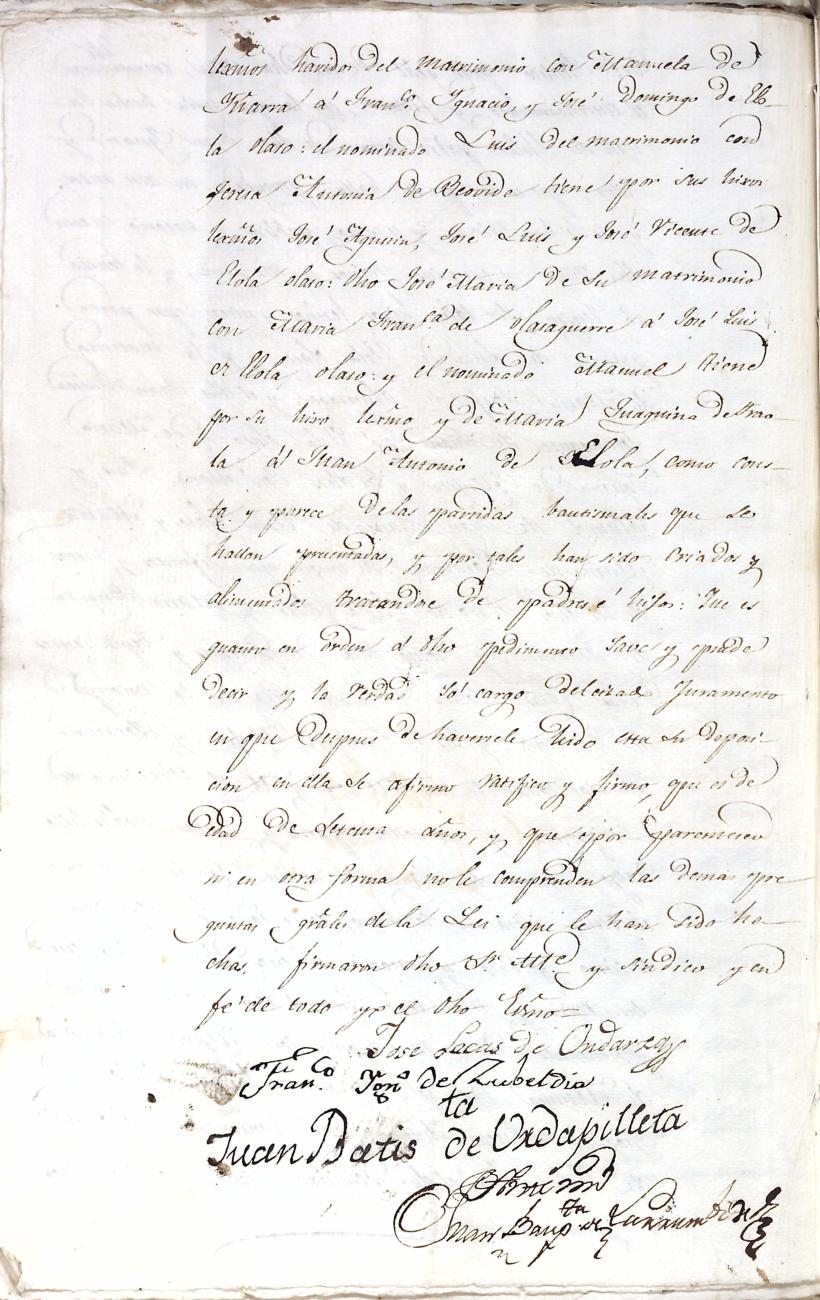 lexmos havidos del matrimonio con Manuela de
Yñarra á Franco. Ygnacio, y José Domingo de Elo-
la olaso: el nominado Luis del matrimonio con
Jerua Antonia de Beovide tiene por sus hixos
lexmos José Agustin, José Luis y José Vicente de
Elola olaso: dho José Maria de su matrimonio
con Maria Franca de olasaguerre á José Luis
de Elola olaso: y el nominado Manuel tiene
por su hixo lexmo y de Maria Juaquina de
la á Juan Antonio de Elola, como cons-
ta y parece de las partidas bautismales que se
hallan presentadas, y por tales han sido criados y
alimentados tratandose de padres é hijos: Que es
quanto en orden á dho pedimento save y puede
decir y la verdad só cargo del citado Juramento
en que despues de haversele leido esta su deposi-
cion en ella se afirmo ratifico y firmo, que es de
edad de setenta años, y que por parentesco
ni en otra forma no le comprenden las demas pre
guntas grales de la Lei que le han sido he-
chas. firmaron dho Sr. Alle y sindico y en
fé de todo yo el dho Esno=
Jose Lucas de Ondarza
Franco. Ygno de Zubeldia
Juan Batista de Urdapilleta
Ante mi
Juan Bauta de